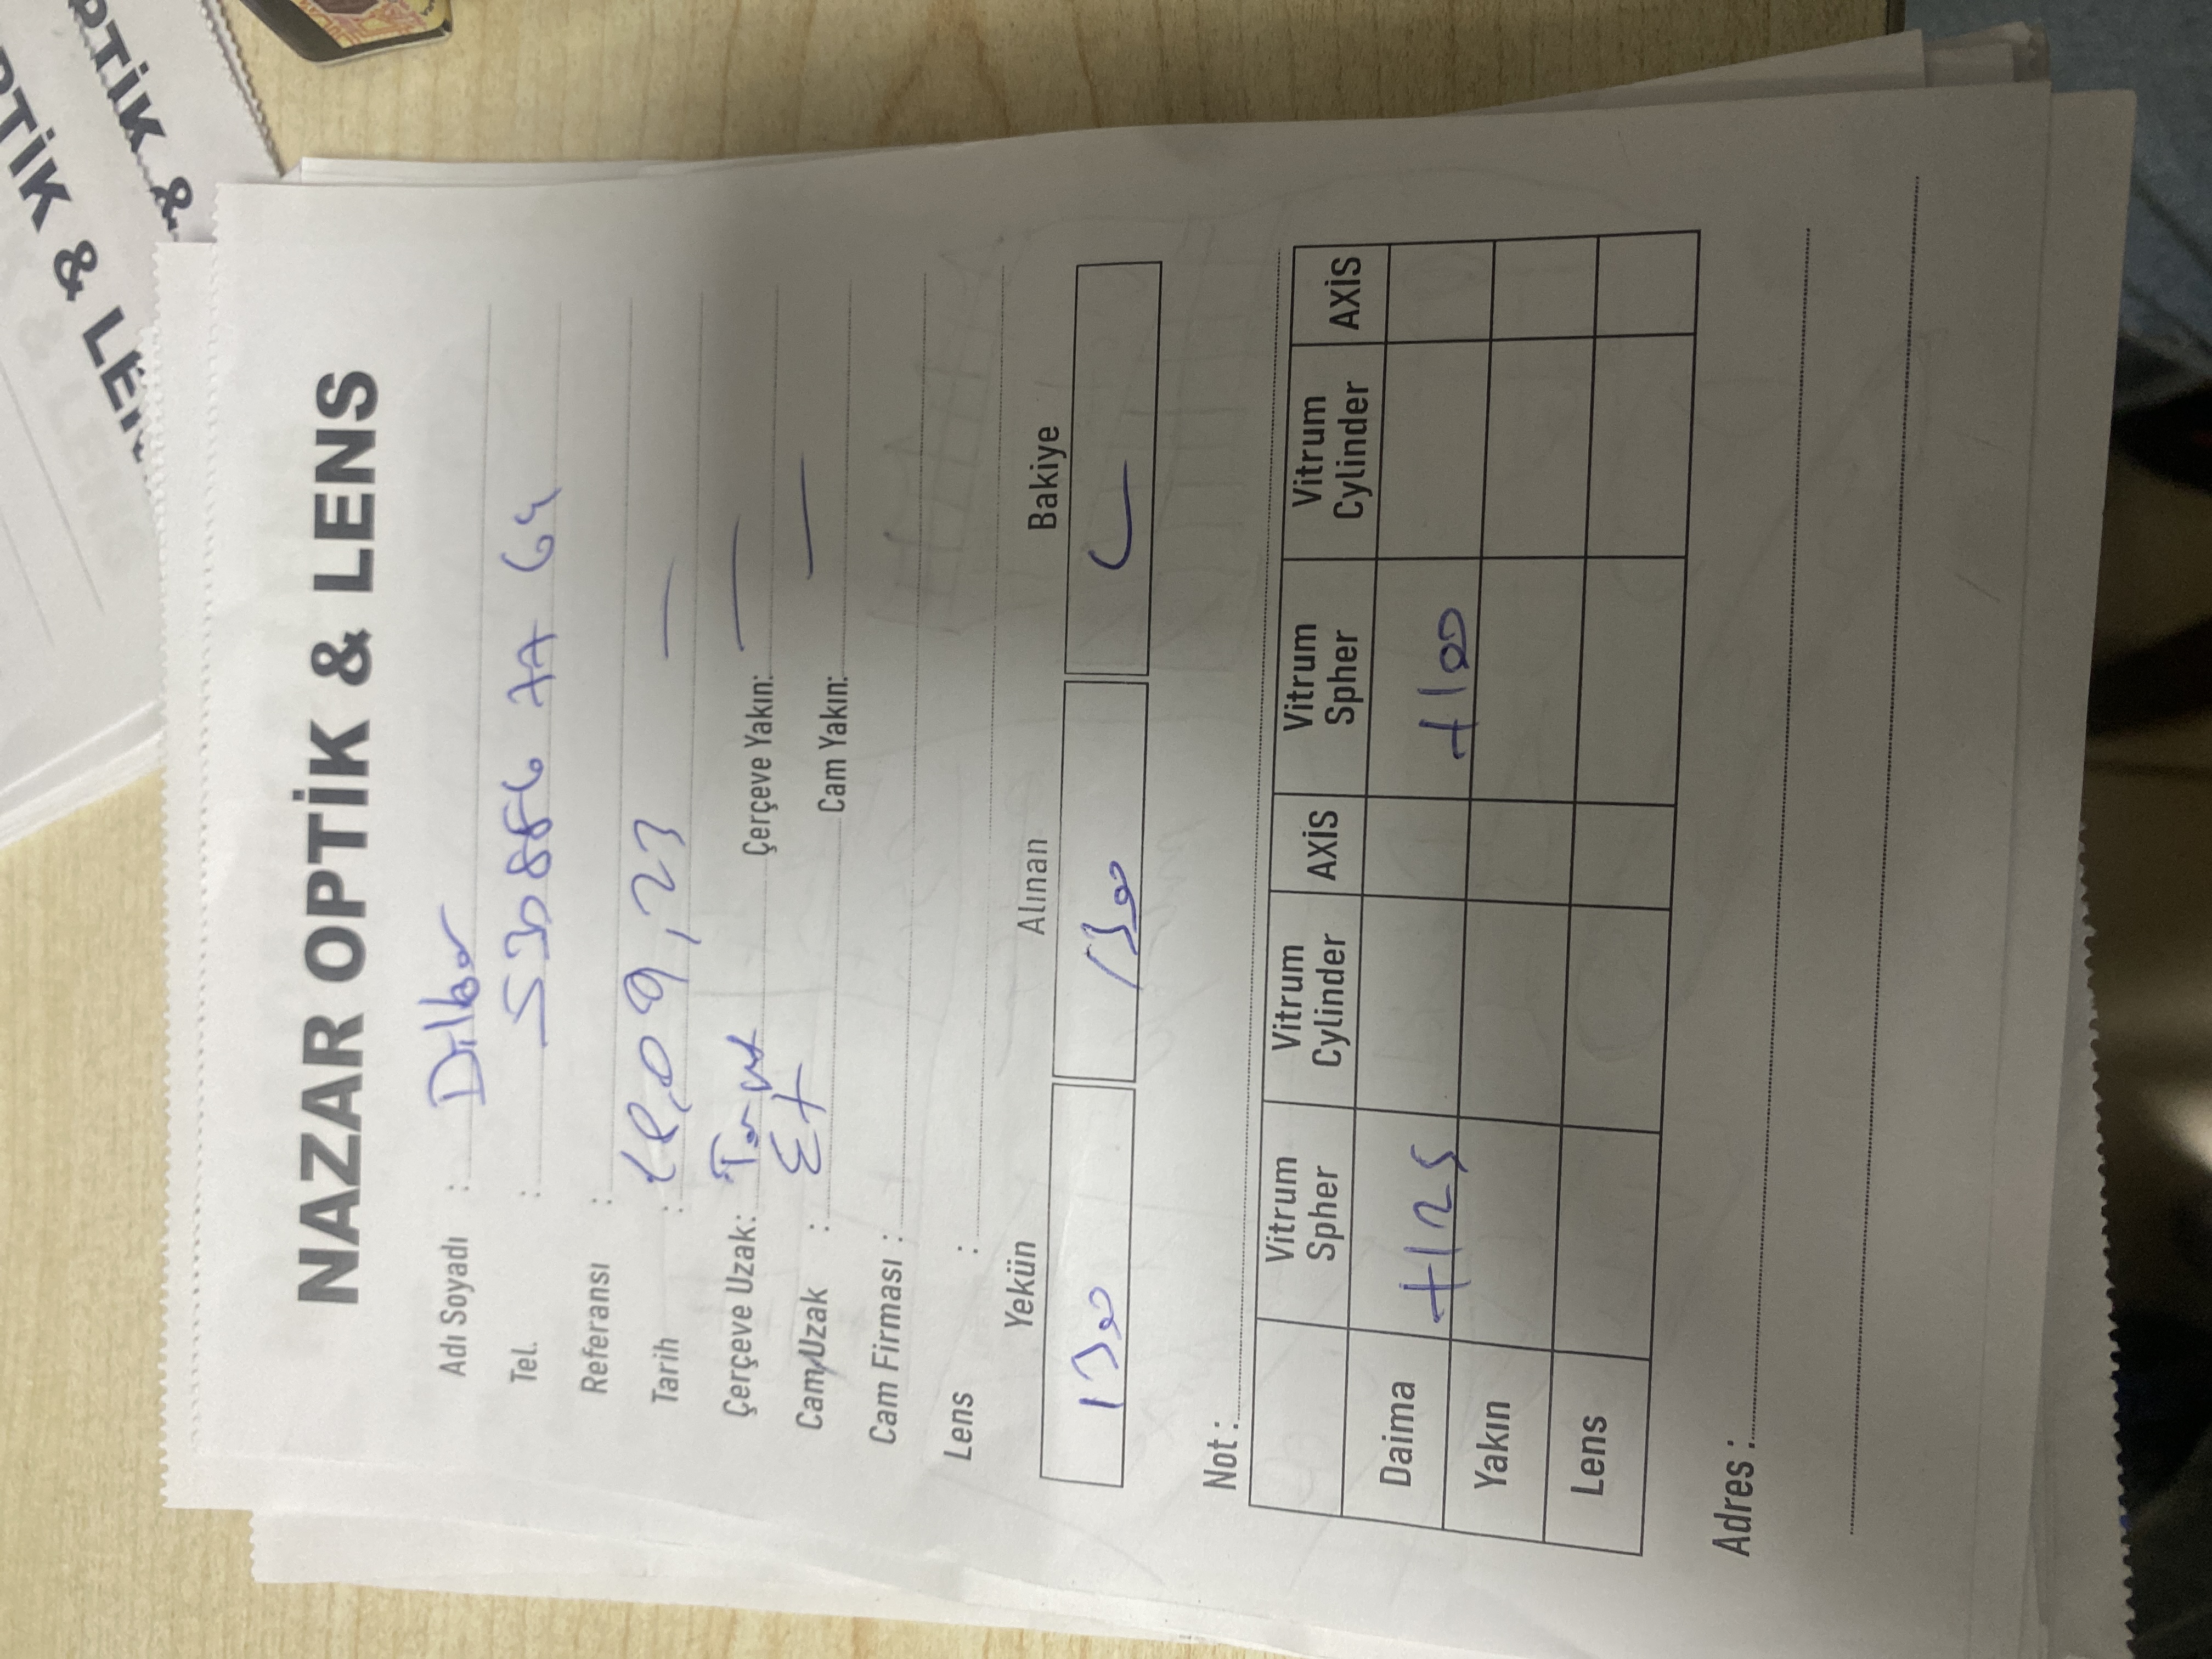 OPTİK & LENS
OPTİK &
NAZAR OPTİK & LENS
Adı Soyadı : Dilber
Tel. : 530 886 77 64
Referansı :
Tarih : 18,09,23 —
Çerçeve Uzak: Çerçeve Yakın: —
Cam/Uzak : Cam Yakın: —
Cam Firması :
Lens :
Yekün Alınan Bakiye
1300 1300
Not :
Vitrum Spher Vitrum Cylinder AXİS Vitrum Spher Vitrum Cylinder AXİS
Daima +125 +100
Yakın
Lens
Adres :